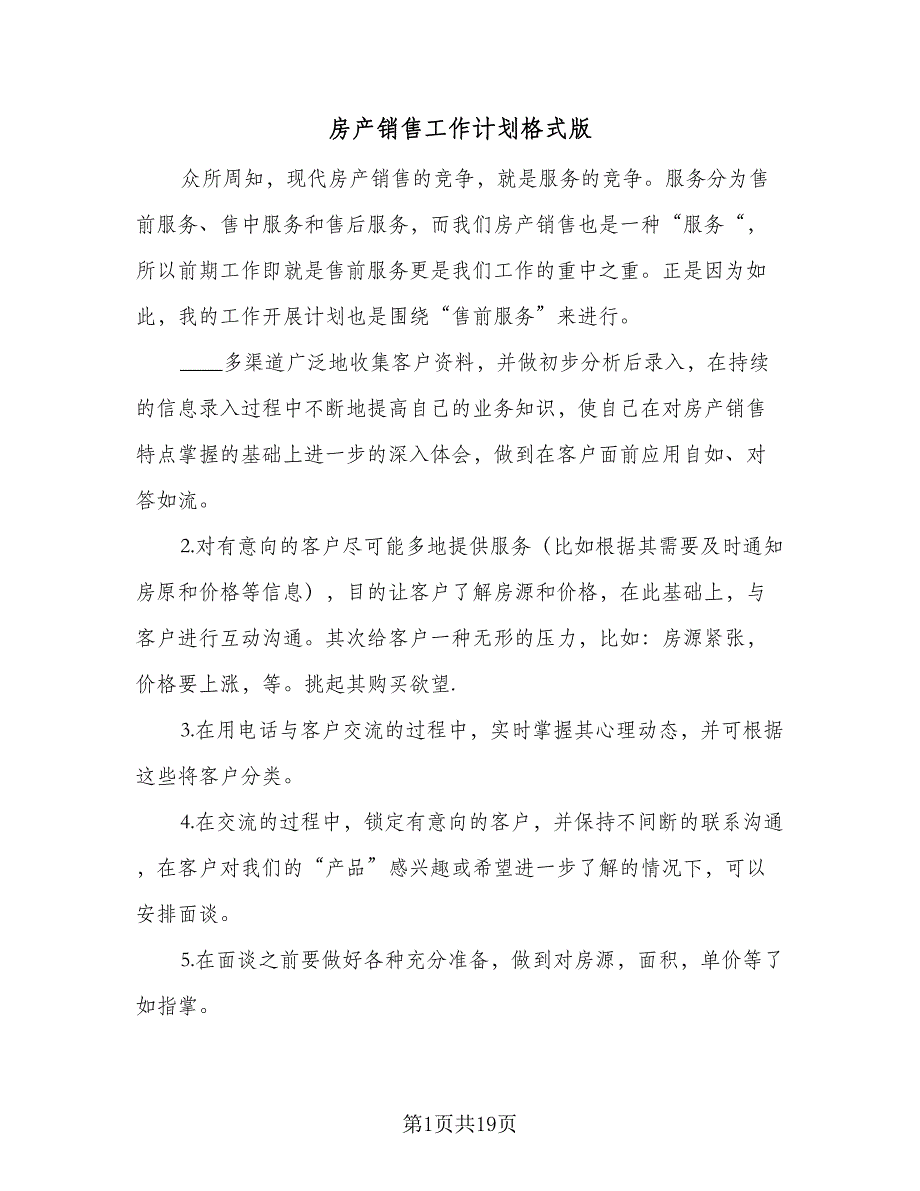 房产销售工作计划格式版
众所周知，现代房产销售的竞争，就是服务的竞争。服务分为售
前服务、售中服务和售后服务，而我们房产销售也是一种“服务“，
所以前期工作即就是售前服务更是我们工作的重中之重。正是因为如
此，我的工作开展计划也是围绕“售前服务”来进行。
____多渠道广泛地收集客户资料，并做初步分析后录入，在持续
的信息录入过程中不断地提高自己的业务知识，使自己在对房产销售
特点掌握的基础上进一步的深入体会，做到在客户面前应用自如、对
答如流。
2.对有意向的客户尽可能多地提供服务（比如根据其需要及时通知
房原和价格等信息），目的让客户了解房源和价格，在此基础上，与
客户进行互动沟通。其次给客户一种无形的压力，比如：房源紧张，
价格要上涨，等。挑起其购买欲望.
3.在用电话与客户交流的过程中，实时掌握其心理动态，并可根据
这些将客户分类。
4.在交流的过程中，锁定有意向的客户，并保持不间断的联系沟通
，在客户对我们的“产品”感兴趣或希望进一步了解的情况下，可以
安排面谈。
5.在面谈之前要做好各种充分准备，做到对房源，面积，单价等了
如指掌。
第1页共19页